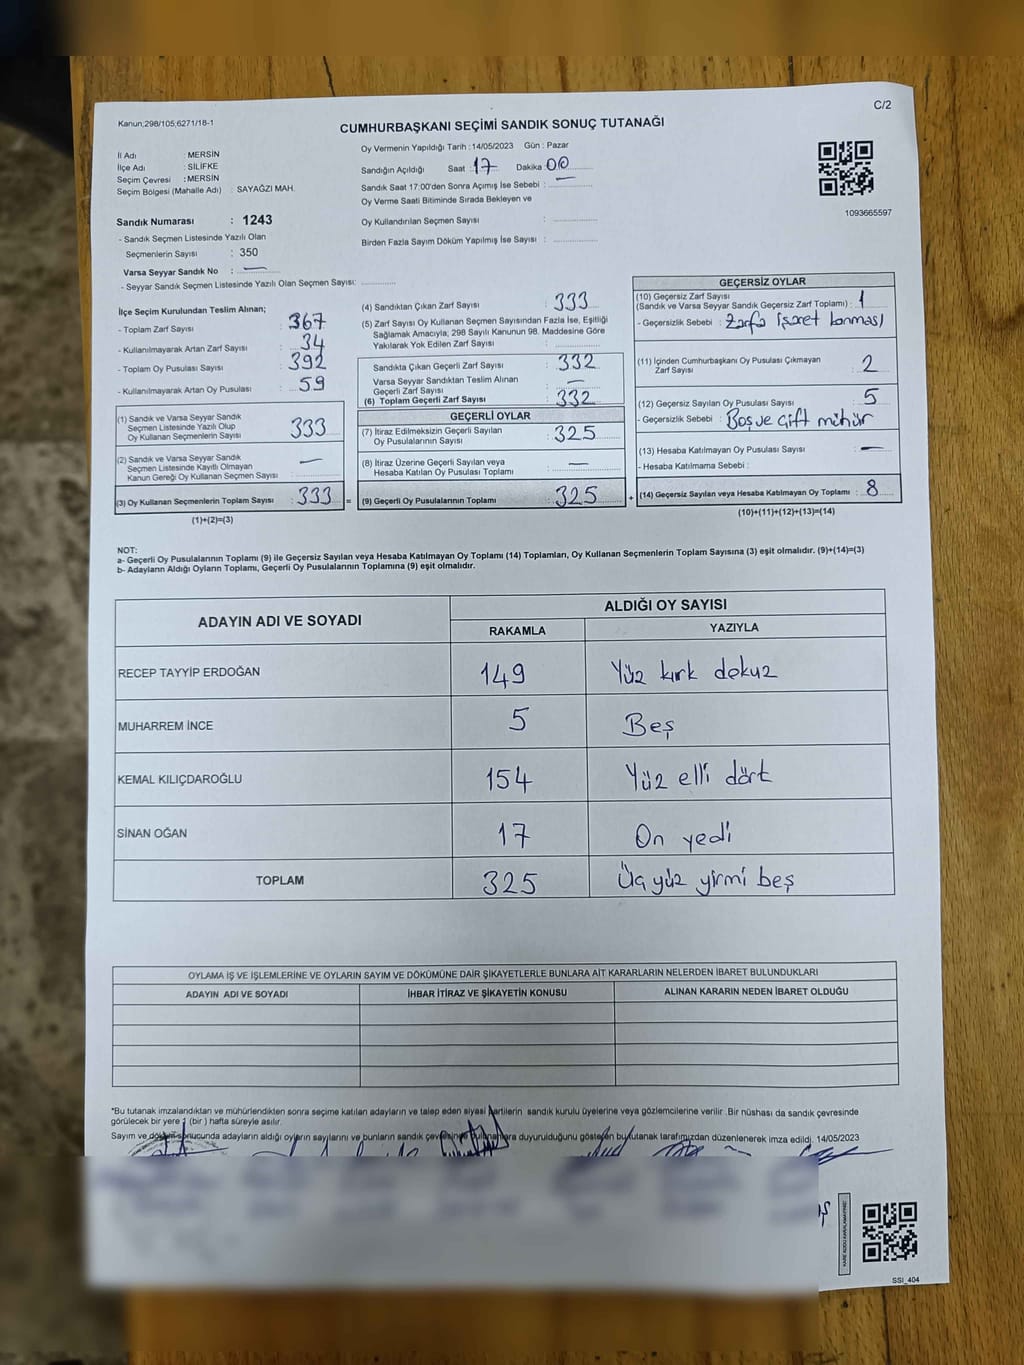 C/2
Kanun;298/105,6271/18-1
CUMHURBAŞKANI SEÇİMİ SANDIK SONUÇ TUTANAĞI
İl Adı : MERSİN
İlçe Adı : SİLİFKE
Seçim Çevresi : MERSİN
Seçim Bölgesi (Mahalle Adı) : SAYAĞZI MAH.
Sandık Numarası : 1243
- Sandık Seçmen Listesinde Yazılı Olan
Seçmenlerin Sayısı : 350
Varsa Seyyar Sandık No : —
- Seyyar Sandık Seçmen Listesinde Yazılı Olan Seçmen Sayısı:
Oy Vermenin Yapıldığı Tarih :14/05/2023 Gün : Pazar
Sandığın Açıldığı Saat 17 Dakika 00
Sandık Saat 17:00'den Sonra Açımış İse Sebebi : —
Oy Verme Saati Bitiminde Sırada Bekleyen ve
Oy Kullandırılan Seçmen Sayısı :
Birden Fazla Sayım Döküm Yapılmış İse Sayısı :
1093665597
İlçe Seçim Kurulundan Teslim Alınan;
- Toplam Zarf Sayısı : 367
- Kullanılmayarak Artan Zarf Sayısı : 34
- Toplam Oy Pusulası Sayısı : 392
- Kullanılmayarak Artan Oy Pusulası : 59
(1) Sandık ve Varsa Seyyar Sandık
Seçmen Listesinde Yazılı Olup
Oy Kullanan Seçmenlerin Sayısı : 333
(2) Sandık ve Varsa Seyyar Sandık
Seçmen Listesinde Kayıtlı Olmayan
Kanun Gereği Oy Kullanan Seçmen Sayısı : —
(3) Oy Kullanan Seçmenlerin Toplam Sayısı : 333 =
(1)+(2)=(3)
(4) Sandıktan Çıkan Zarf Sayısı : 333
(5) Zarf Sayısı Oy Kullanan Seçmen Sayısından Fazla İse, Eşitliği
Sağlamak Amacıyla; 298 Sayılı Kanunun 98. Maddesine Göre
Yakılarak Yok Edilen Zarf Sayısı :
Sandıkta Çıkan Geçerli Zarf Sayısı : 332
Varsa Seyyar Sandıktan Teslim Alınan
Geçerli Zarf Sayısı : —
(6) Toplam Geçerli Zarf Sayısı : 332
GEÇERLİ OYLAR
(7) İtiraz Edilmeksizin Geçerli Sayılan
Oy Pusulalarının Sayısı : 325
(8) İtiraz Üzerine Geçerli Sayılan veya
Hesaba Katılan Oy Pusulası Toplamı : —
(9) Geçerli Oy Pusulalarının Toplamı : 325 +
GEÇERSİZ OYLAR
(10) Geçersiz Zarf Sayısı
(Sandık ve Varsa Seyyar Sandık Geçersiz Zarf Toplamı) : 1
- Geçersizlik Sebebi : Zarfa işaret konması
(11) İçinden Cumhurbaşkanı Oy Pusulası Çıkmayan
Zarf Sayısı : 2
(12) Geçersiz Sayılan Oy Pusulası Sayısı : 5
- Geçersizlik Sebebi : Boş ve çift mühür
(13) Hesaba Katılmayan Oy Pusulası Sayısı : —
- Hesaba Katılmama Sebebi :
(14) Geçersiz Sayılan veya Hesaba Katılmayan Oy Toplamı : 8
(10)+(11)+(12)+(13)=(14)
NOT:
a- Geçerli Oy Pusulalarının Toplamı (9) ile Geçersiz Sayılan veya Hesaba Katılmayan Oy Toplamı (14) Toplamları, Oy Kullanan Seçmenlerin Toplam Sayısına (3) eşit olmalıdır. (9)+(14)=(3)
b- Adayların Aldığı Oyların Toplamı, Geçerli Oy Pusulalarının Toplamına (9) eşit olmalıdır.
ADAYIN ADI VE SOYADI
ALDIĞI OY SAYISI
RAKAMLA YAZIYLA
RECEP TAYYİP ERDOĞAN 149 Yüz kırk dokuz
MUHARREM İNCE 5 Beş
KEMAL KILIÇDAROĞLU 154 Yüz elli dört
SİNAN OĞAN 17 On yedi
TOPLAM 325 Üç yüz yirmi beş
OYLAMA İŞ VE İŞLEMLERİNE VE OYLARIN SAYIM VE DÖKÜMÜNE DAİR ŞİKAYETLERLE BUNLARA AİT KARARLARIN NELERDEN İBARET BULUNDUKLARI
ADAYIN ADI VE SOYADI İHBAR İTİRAZ VE ŞİKAYETİN KONUSU ALINAN KARARIN NEDEN İBARET OLDUĞU
*Bu tutanak imzalandıktan ve mühürlendikten sonra seçime katılan adayların ve talep eden siyasi partilerin sandık kurulu üyelerine veya gözlemcilerine verilir .Bir nüshası da sandık çevresinde
görülecek bir yere 1 (bir ) hafta süreyle asılır.
Sayım ve döküm sonucunda adayların aldığı oyların sayılarını ve bunların sandık çevresinde bulunanlara duyurulduğunu gösteren bu tutanak tarafımızdan düzenlenerek imza edildi. 14/05/2023
SSI_404